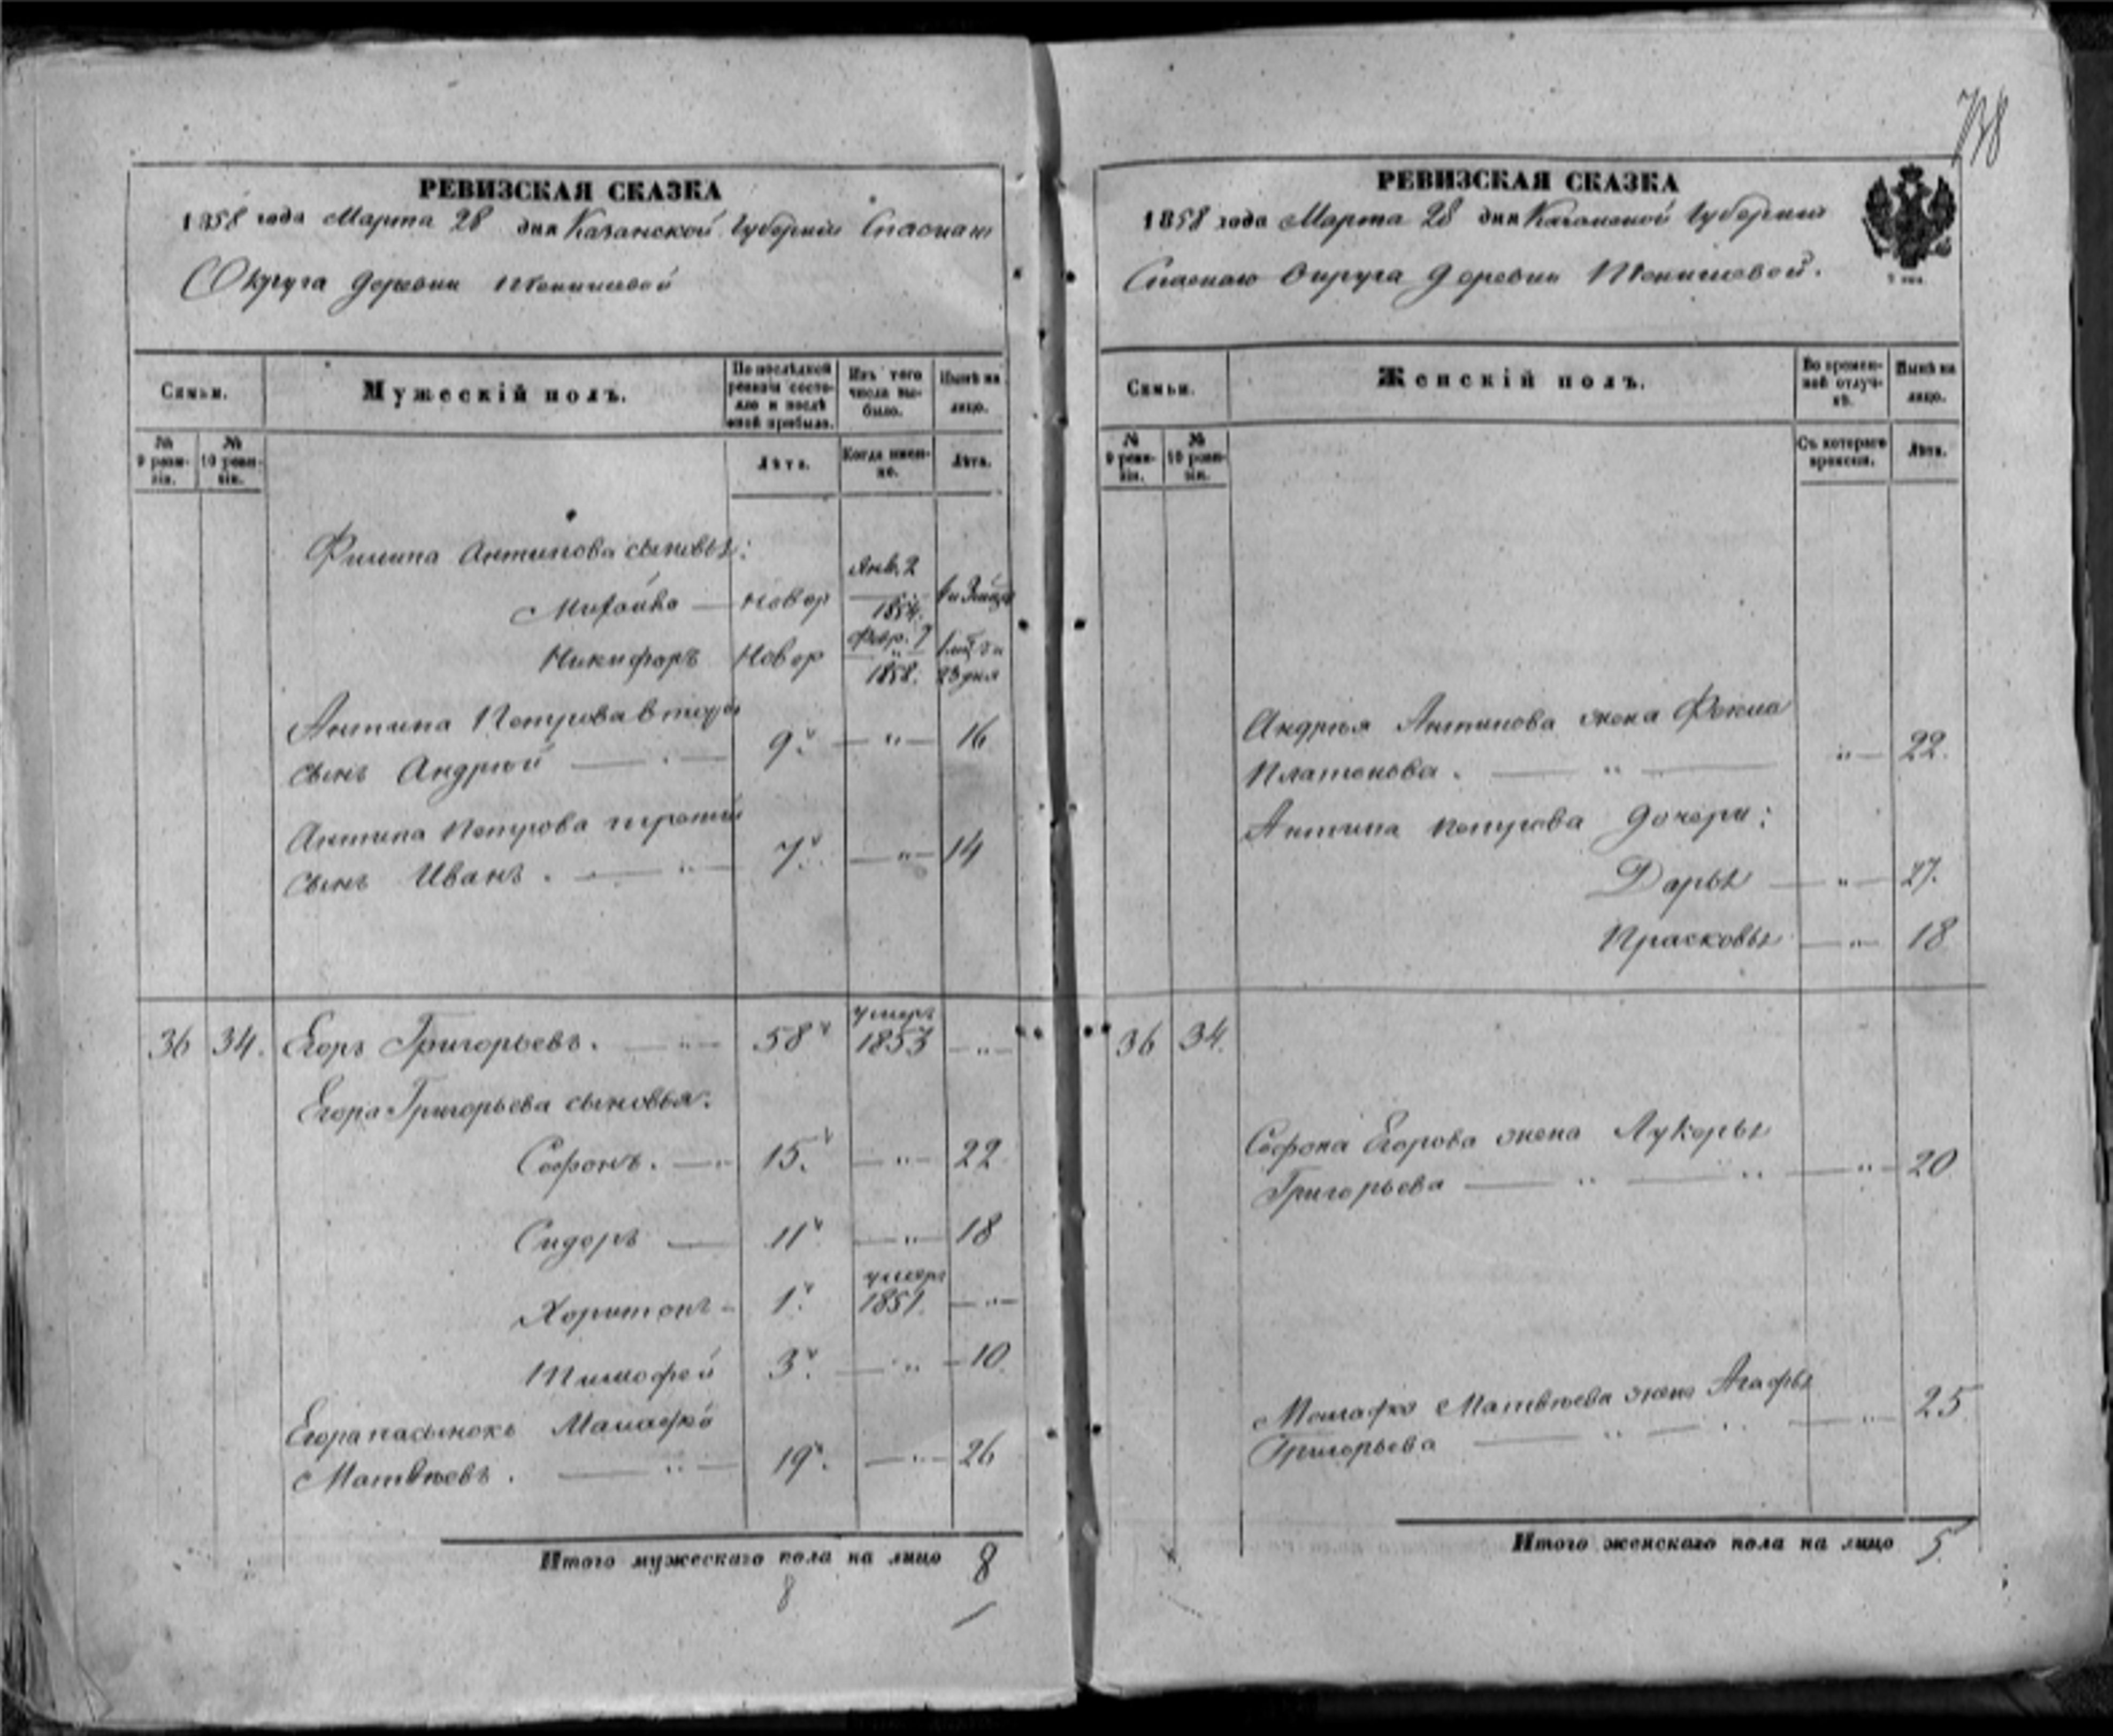 738
РЕВИЗСКАЯ СКАЗКА
1858 года Марта 28 дня Казанской Губерніи Спаскаго
Округа деревни
Семьи.
Мужескій полъ.
По послѣдней ревизіи состояло и послѣ оной прибыло.
Изъ того числа выбыло.
Нынѣ на лицо.
№ 9 ревизіи.
№ 10 ревизіи.
Лѣта.
Когда именно.
Лѣта.
Филипа Антипова сыновья:
Михайло — Новор Янв. 2 1854.
Никифоръ Новор Февр. 1858. 23 дня
Антипа Петрова вторы
сынъ Андрей — 9. — " — 16
Антипа Петрова третій
сынъ Иванъ. — " — 7. — " — 14
36 34. Егоръ Григорьевъ. — " — 58 умеръ 1853 — " —
Егора Григорьева сыновья:
Софонъ. — " 15. — " — 22
Сидоръ — 11 — " — 18
Харитонъ — 1. умеръ 1851. — " —
Тимофей 3. — " — 10
Егора пасынокъ
Матвѣевъ. — " — 19. — " — 26
Итого мужескаго пола на лицо 8
8
РЕВИЗСКАЯ СКАЗКА
1858 года Марта 28 дня Казанской Губерніи
Спаскаго Округа деревни
Семьи.
Женскій полъ.
Во временной отлучкѣ.
Нынѣ на лицо.
№ 9 ревизіи.
№ 10 ревизіи.
Съ котораго времени.
Лѣта.
Андрея Антипова жена Фекла
Платонова. — " — " — 22.
Антипа Петрова дочери:
Дарья — " — 27.
Прасковья — " — 18
36 34.
Софона Егорова жена Лукерья
Григорьева — " — " — " — 20
Матвѣева жена Агафья
Григорьева — " — " — 25
Итого женскаго пола на лицо 5